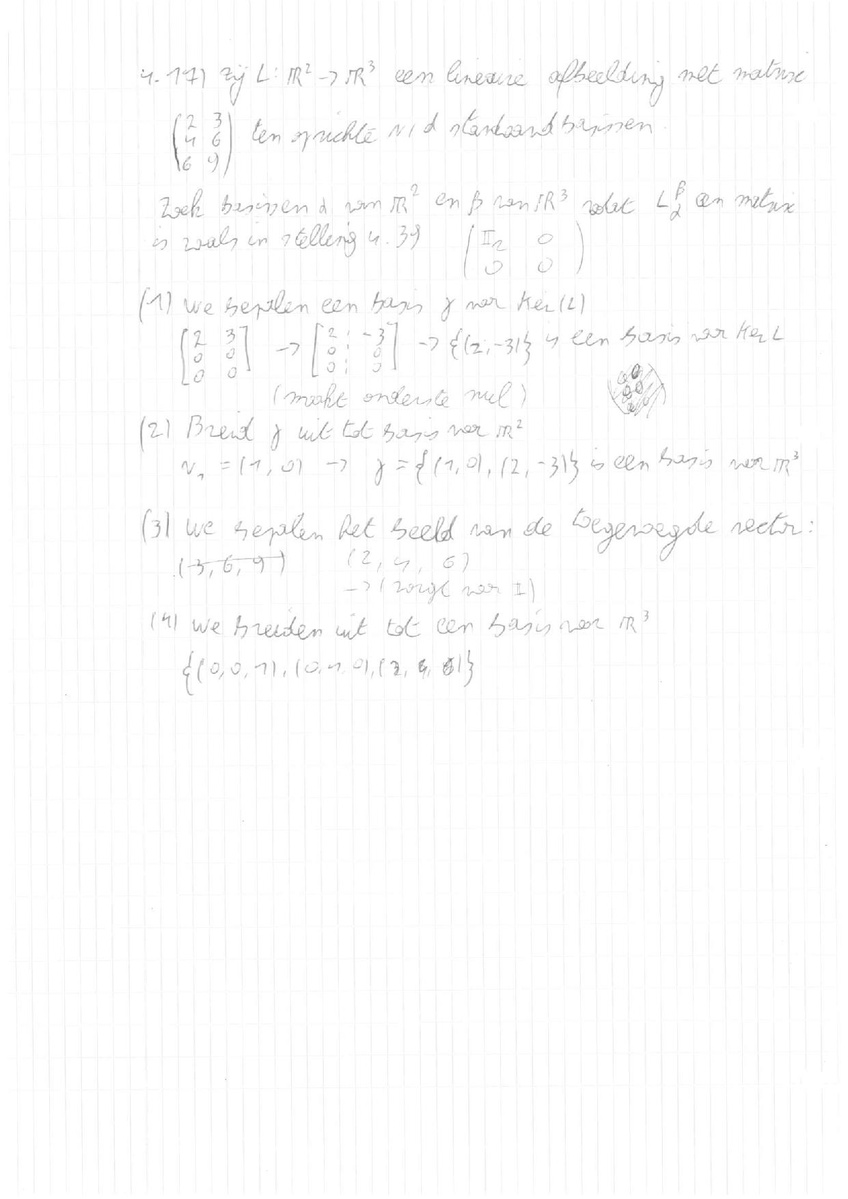 4.17) Zij L: ℝ² → ℝ³ een lineaire afbeelding met matrix
(2 3
4 6
6 9) ten opzichte v/d standaardbasissen.
Zoek basissen α van ℝ² en β van ℝ³ zodat L_α^β een matrix
is zoals in stelling 4.39 (I_r 0
0 0)
(1) We bepalen een basis γ voor Ker(L)
[2 3
0 0
0 0] → [2 ⋮ -3
0 ⋮ 0
0 ⋮ 0] → {(2,-3)} is een basis voor Ker L
(maakt onderste nul)
(2) Breid γ uit tot basis voor ℝ²
v₁ = (1,0) → γ = {(1,0), (2,-3)} is een basis voor ℝ³
(3) We bepalen het beeld van de toegevoegde vector:
(3,6,9) (2, 4, 6)
→ (zorgt voor I)
(4) We breiden uit tot een basis voor ℝ³
{(0,0,1), (0,1,0), (2,4,6)}